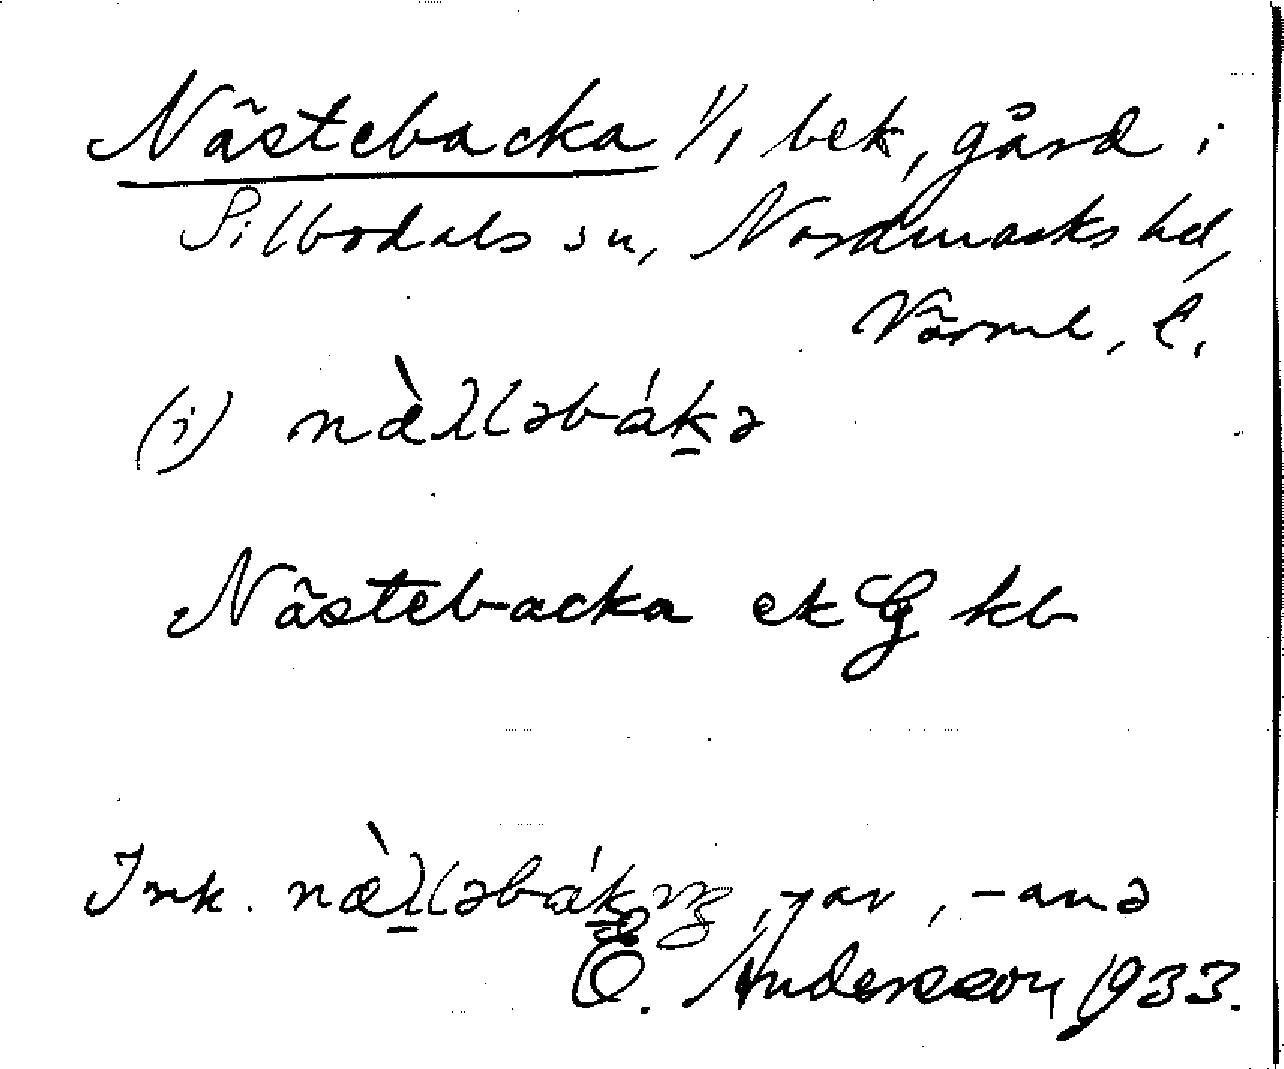 Nästebacka 1/1 bek, gård i
Silbodals sn, Nordmarks hd,
Värml. l.
(i) næ̀λləbák̠ə
Nästebacka ek G kb
Ink. næ̀λ̠ləbák̠ , -ar, -anə
Ö. Andersson 1933.